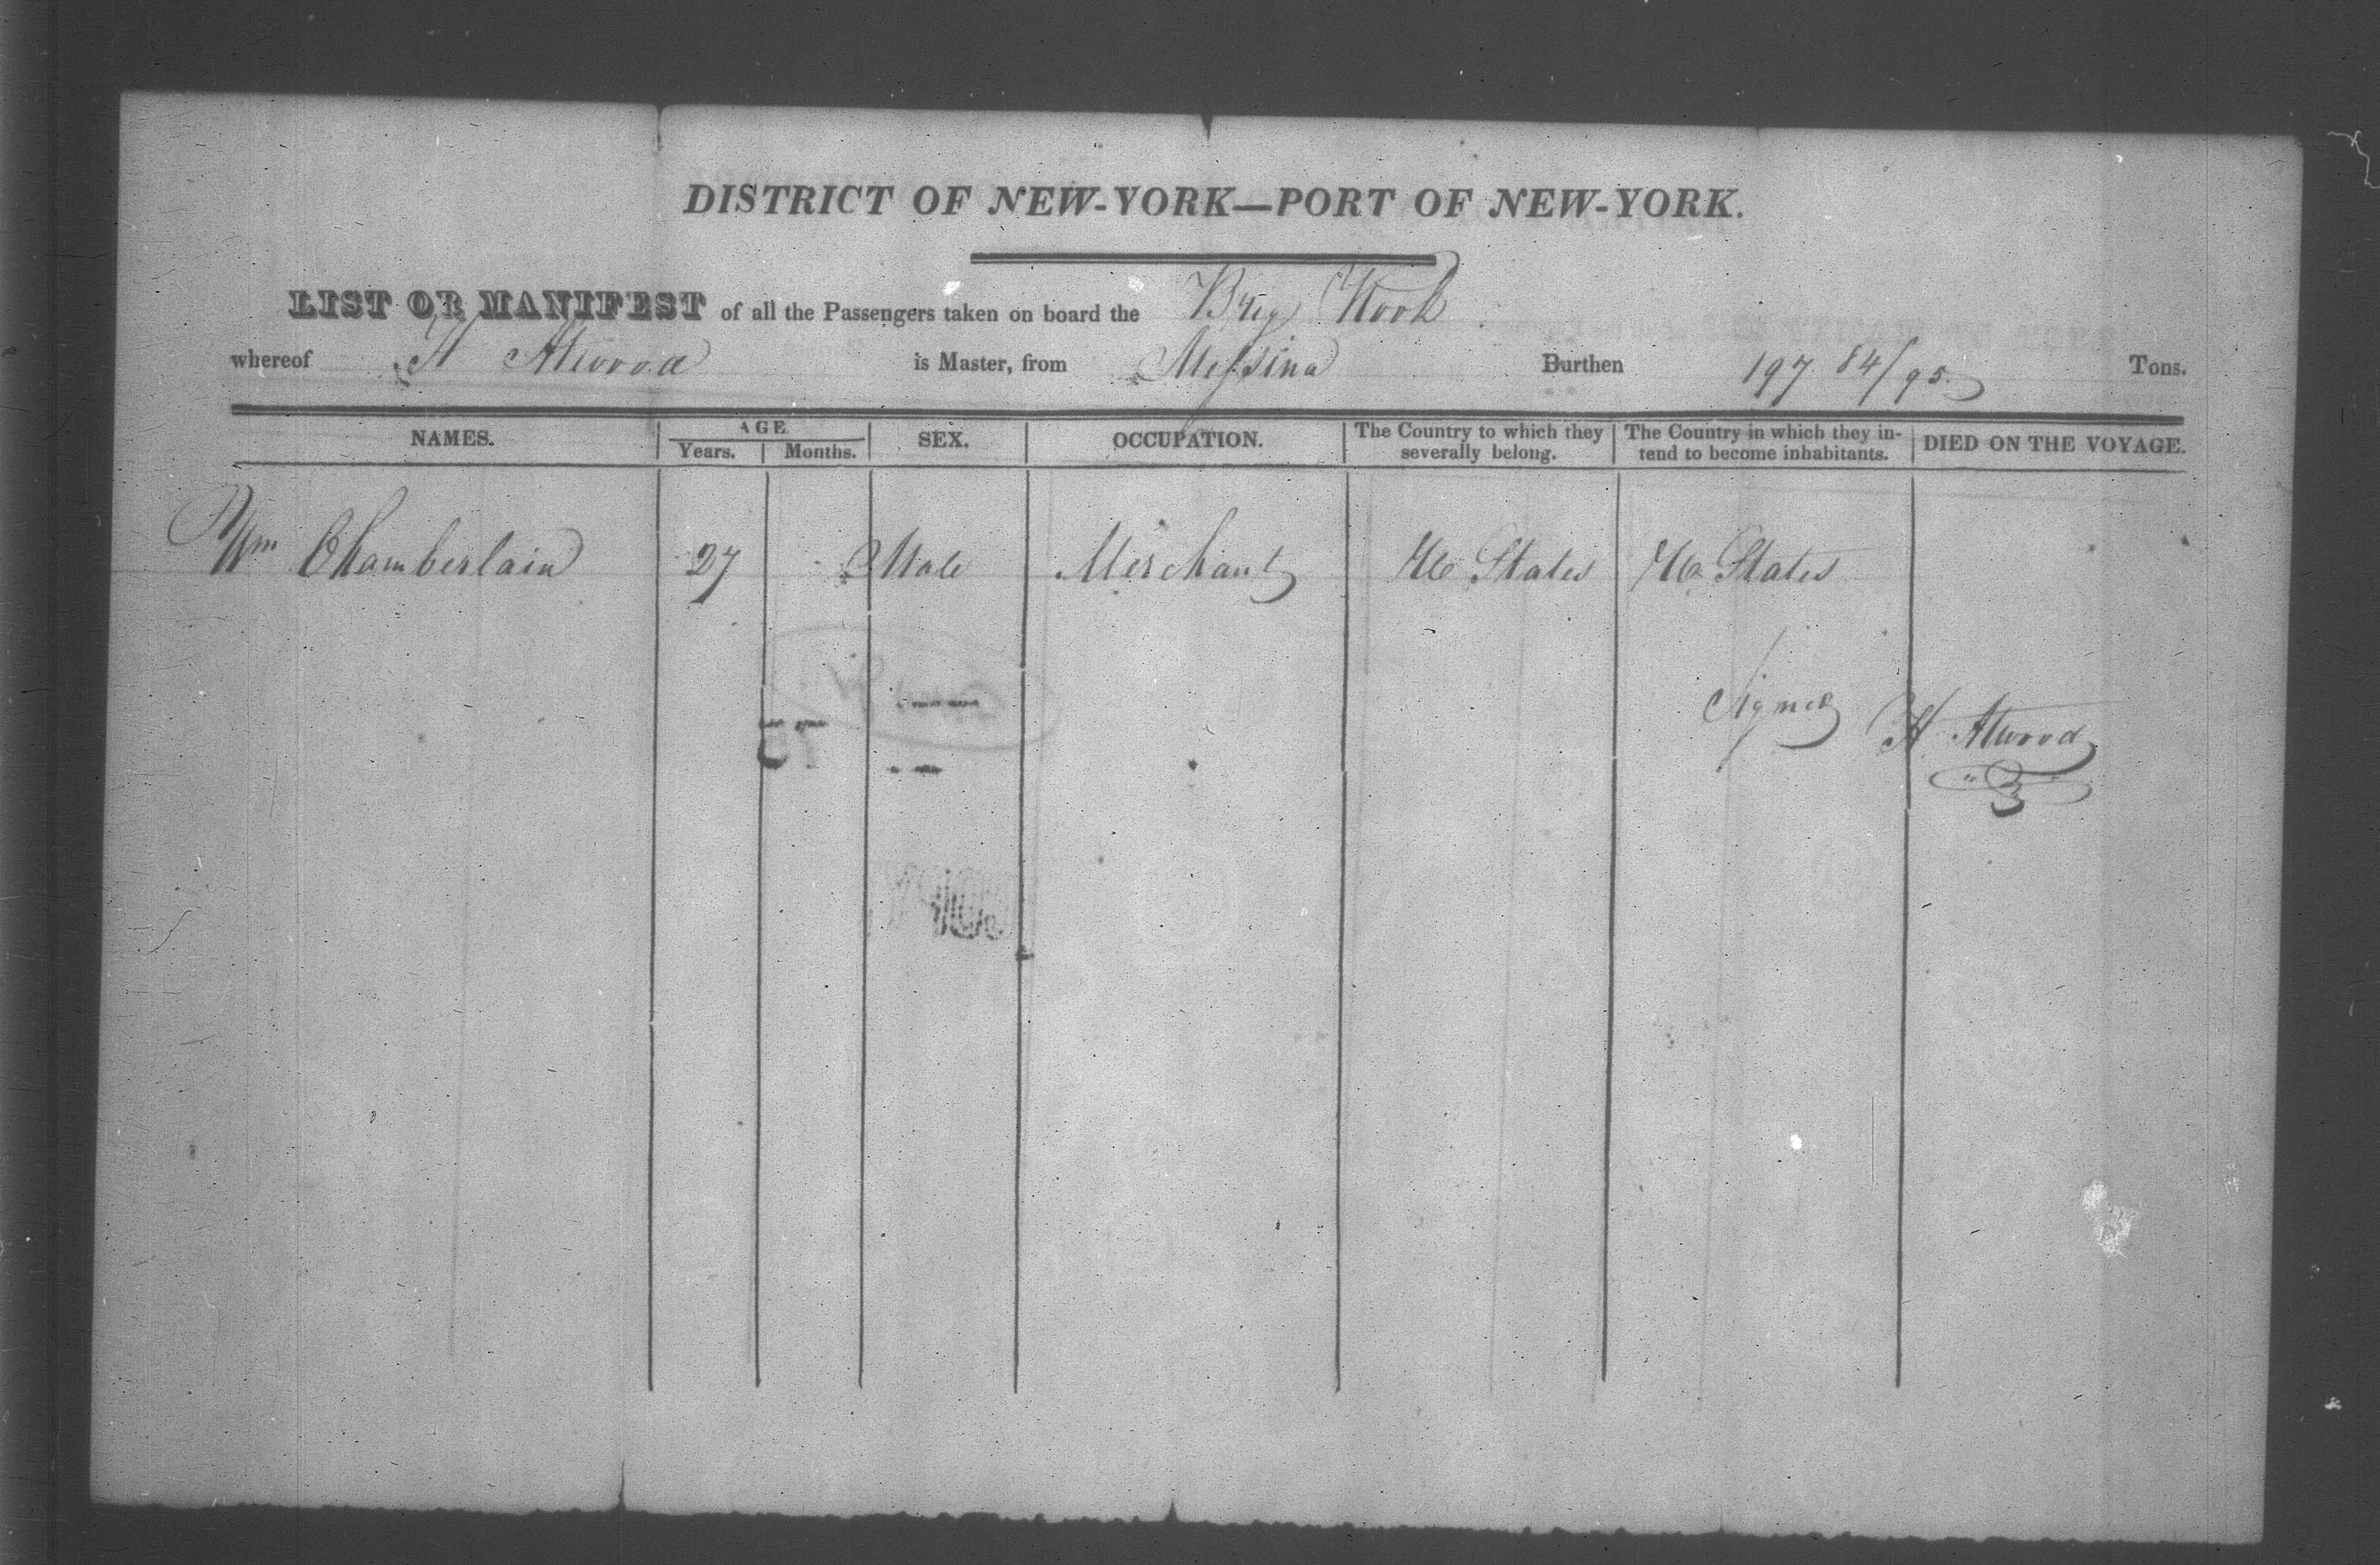 DISTRICT OF NEW-YORK—PORT OF NEW-YORK.
LIST OR MANIFEST of all the Passengers taken on board the Brig
whereof H Atwood is Master, from Messina Burthen 197 84/95 Tons.
NAMES. AGE SEX. OCCUPATION. The Country to which they severally belong. The Country in which they intend to become inhabitants. DIED ON THE VOYAGE.
Years. Months.
Wm Chamberlain 27 Male Merchant U States U States
Signed H Atwood